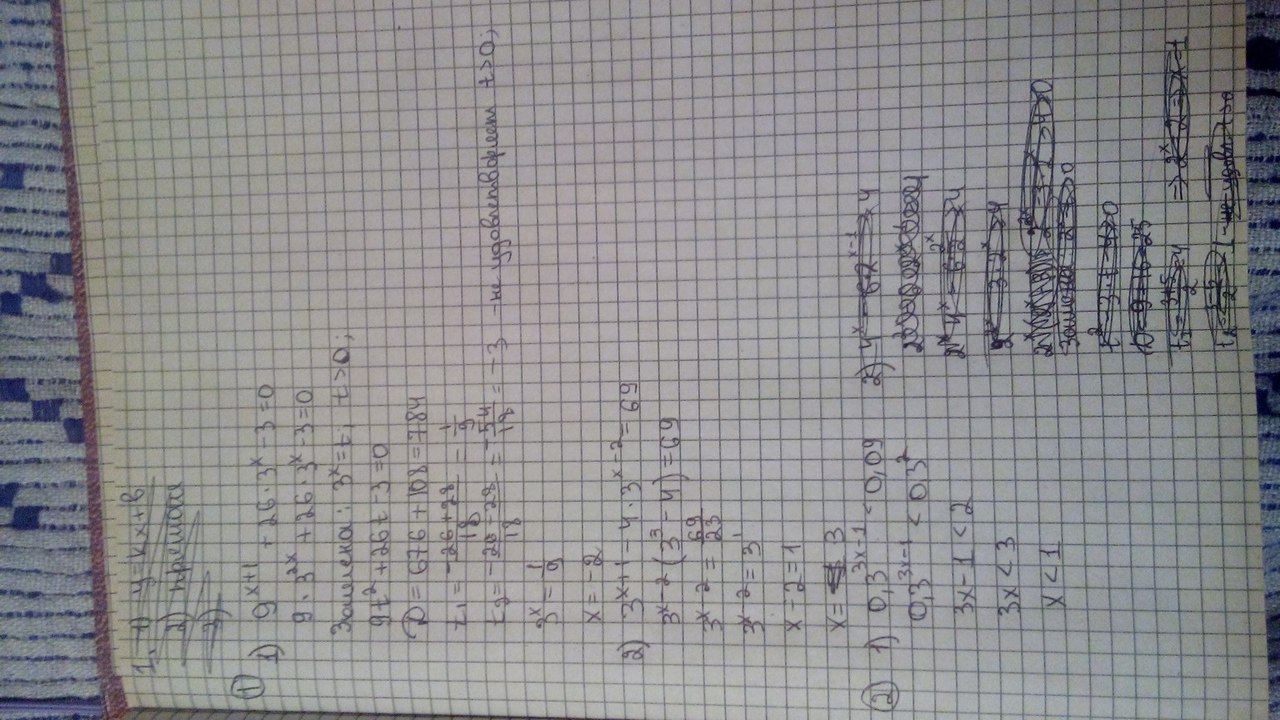 1. 1) y=kx+b
2) прямая
3)
① 1) 9^{x+1} + 26·3^x - 3 = 0
9·3^{2x} + 26·3^x - 3 = 0
Замена: 3^x = t; t>0;
9t² + 26t - 3 = 0
D = 676 + 108 = 784
t₁ = \frac{-26+28}{18} = \frac{1}{9}
t₂ = \frac{-26-28}{18} = -\frac{54}{18} = -3 - не удовлетворяет t>0;
3^x = \frac{1}{9}
x = -2
2) 3^{x+1} - 4·3^{x-2} = 69
3^{x-2}(3³ - 4) = 69
3^{x-2} = \frac{69}{23}
3^{x-2} = 3^1
x - 2 = 1
x = 3
② 1) 0,3^{3x-1} < 0,09
0,3^{3x-1} < 0,3²
3x - 1 < 2
3x < 3
x < 1
2) 4^x - 6·2^{x-1} > 4